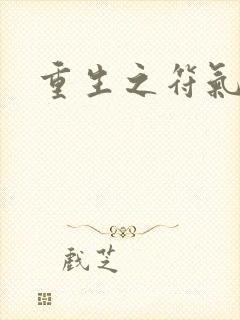 重生之符氣
戲芝